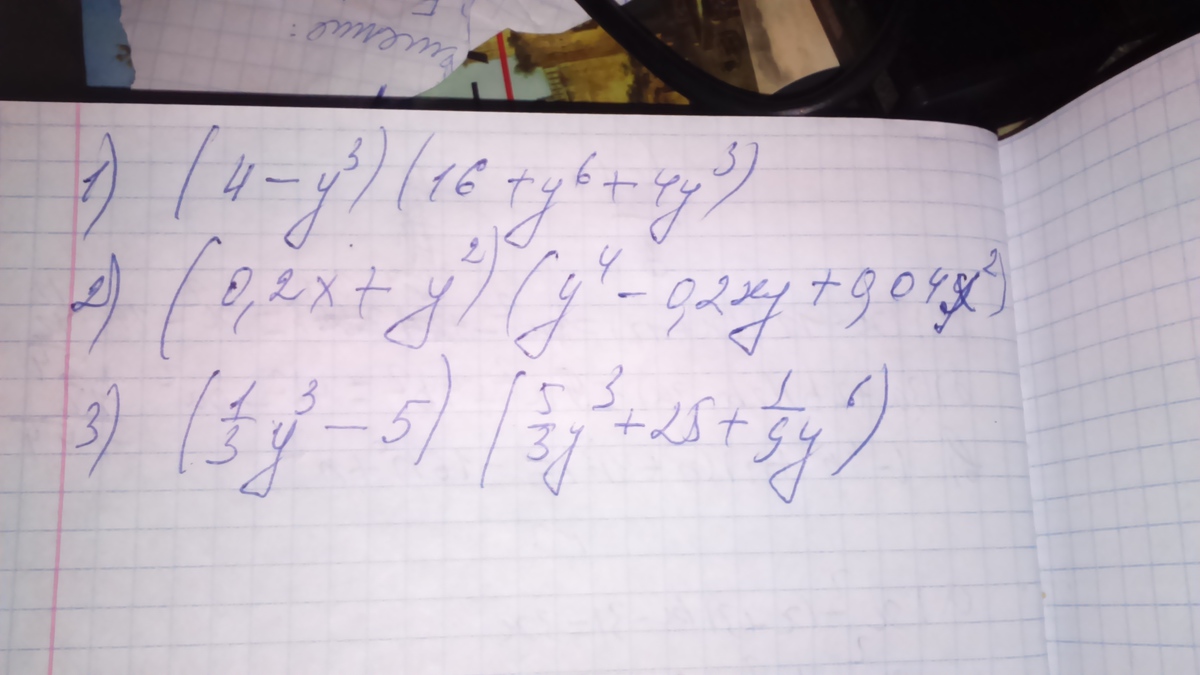 1) (4 - y³) (16 + y⁶ + 4y³)
2) (0,2x + y²) (y⁴ - 0,2xy + 0,04x²)
3) (1/3 y³ - 5) (5/3 y³ + 25 + 1/9 y⁶)